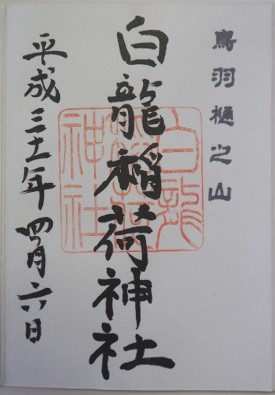 鳥羽樋之山
白龍稲荷神社
平成三十一年四月六日
白龍稲荷神社